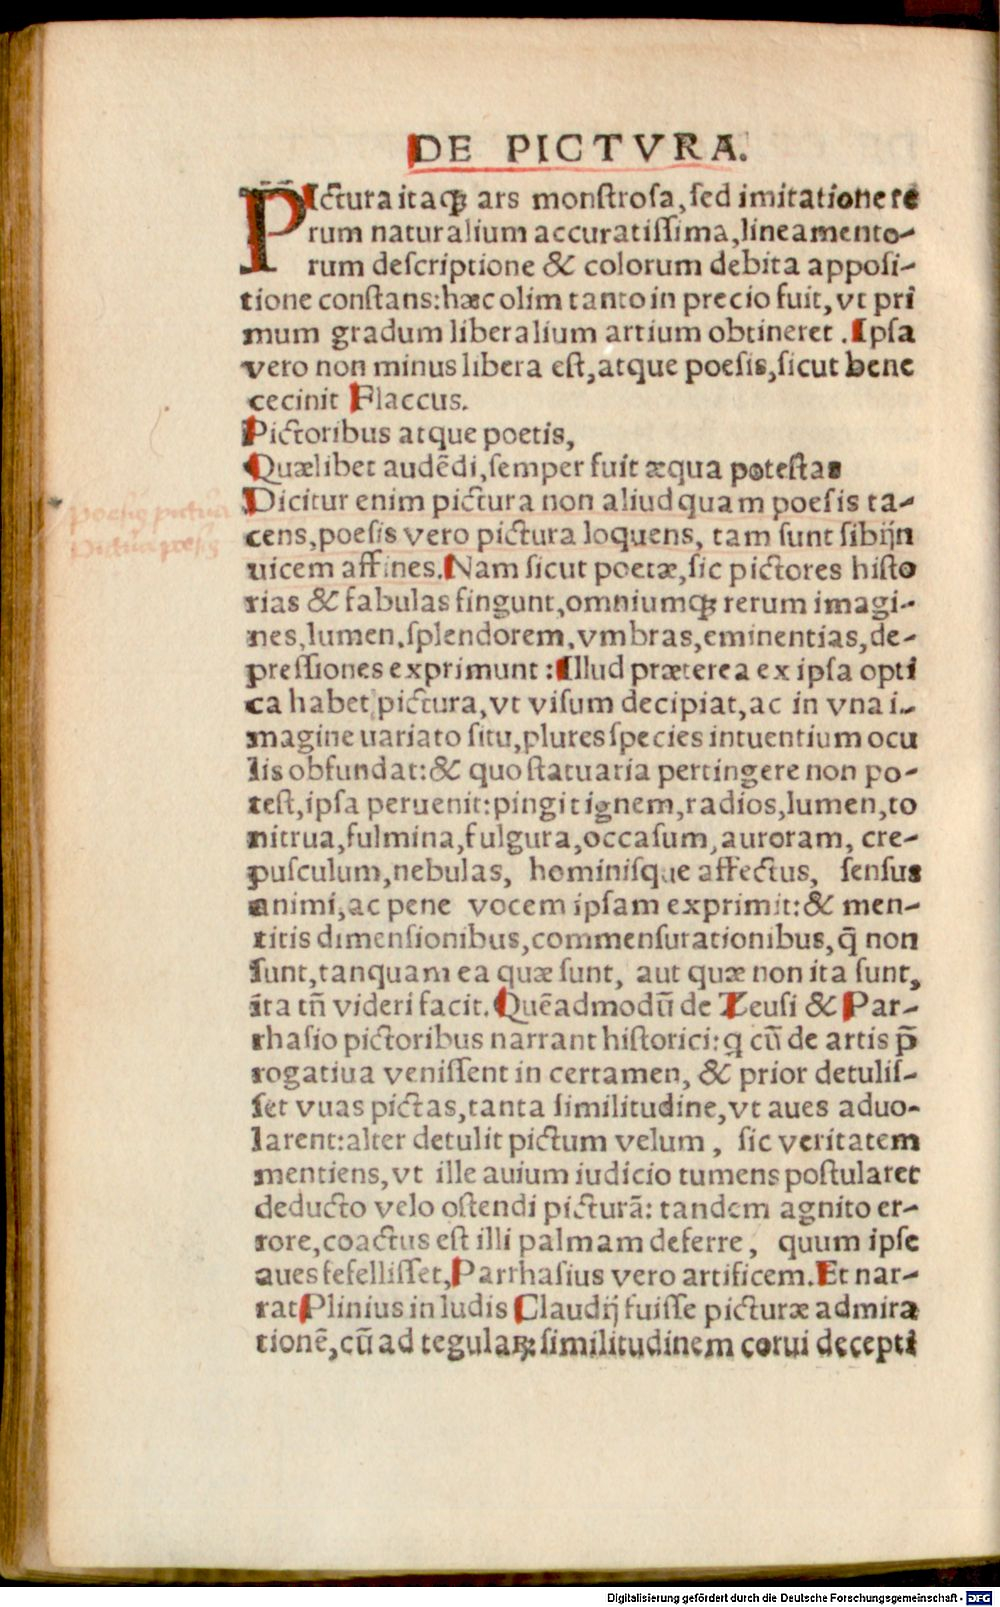 DE PICTVRA.
PIctura itaqꝫ ars monſtroſa, ſed imitatione re
rum naturalium accuratiſſima, lineamento-
rum deſcriptione & colorum debita appoſi-
tione conſtans: hæc olim tanto in precio fuit, vt pri
mum gradum liberalium artium obtineret. Ipſa
vero non minus libera eſt, atque poeſis, ſicut bene
cecinit Flaccus.
Pictoribus atque poetis,
Quælibet audēdi, ſemper fuit æqua poteſtas
Dicitur enim pictura non aliud quam poeſis ta-
cens, poeſis vero pictura loquens, tam ſunt ſibijn
uicem affines. Nam ſicut poetæ, ſic pictores hiſto
rias & fabulas fingunt, omniumqꝫ rerum imagi-
nes, lumen, ſplendorem, vmbras, eminentias, de-
preſſiones exprimunt: Illud præterea ex ipſa opti
ca habet pictura, vt viſum decipiat, ac in vna i-
magine uariato ſitu, plures ſpecies intuentium ocu
lis obfundat: & quo ſtatuaria pertingere non po-
teſt, ipſa peruenit: pingit ignem, radios, lumen, to
nitrua, fulmina, fulgura, occaſum, auroram, cre-
puſculum, nebulas, hominiſque affectus, ſenſus
animi, ac pene vocem ipſam exprimit: & men-
titis dimenſionibus, commenſurationibus, q̄ non
ſunt, tanquam ea quæ ſunt, aut quæ non ita ſunt,
ita tñ videri facit. Quēadmodū de Zeuſi & Par-
rhaſio pictoribus narrant hiſtorici: q cū de artis p̄
rogatiua veniſſent in certamen, & prior detuliſ-
ſet vuas pictas, tanta ſimilitudine, vt aues aduo-
larent: alter detulit pictum velum, ſic veritatem
mentiens, vt ille auium iudicio tumens poſtularet
deducto velo oſtendi picturā: tandem agnito er-
rore, coactus eſt illi palmam deferre, quum ipſe
aues fefelliſſet, Parrhaſius vero artificem. Et nar-
rat Plinius in ludis Claudij fuiſſe picturæ admira
tionē, cū ad tegulaꝝ ſimilitudinem corui decepti
Poesis pictura
Pictura poesis
Digitalisierung gefördert durch die Deutsche Forschungsgemeinschaft - DFG